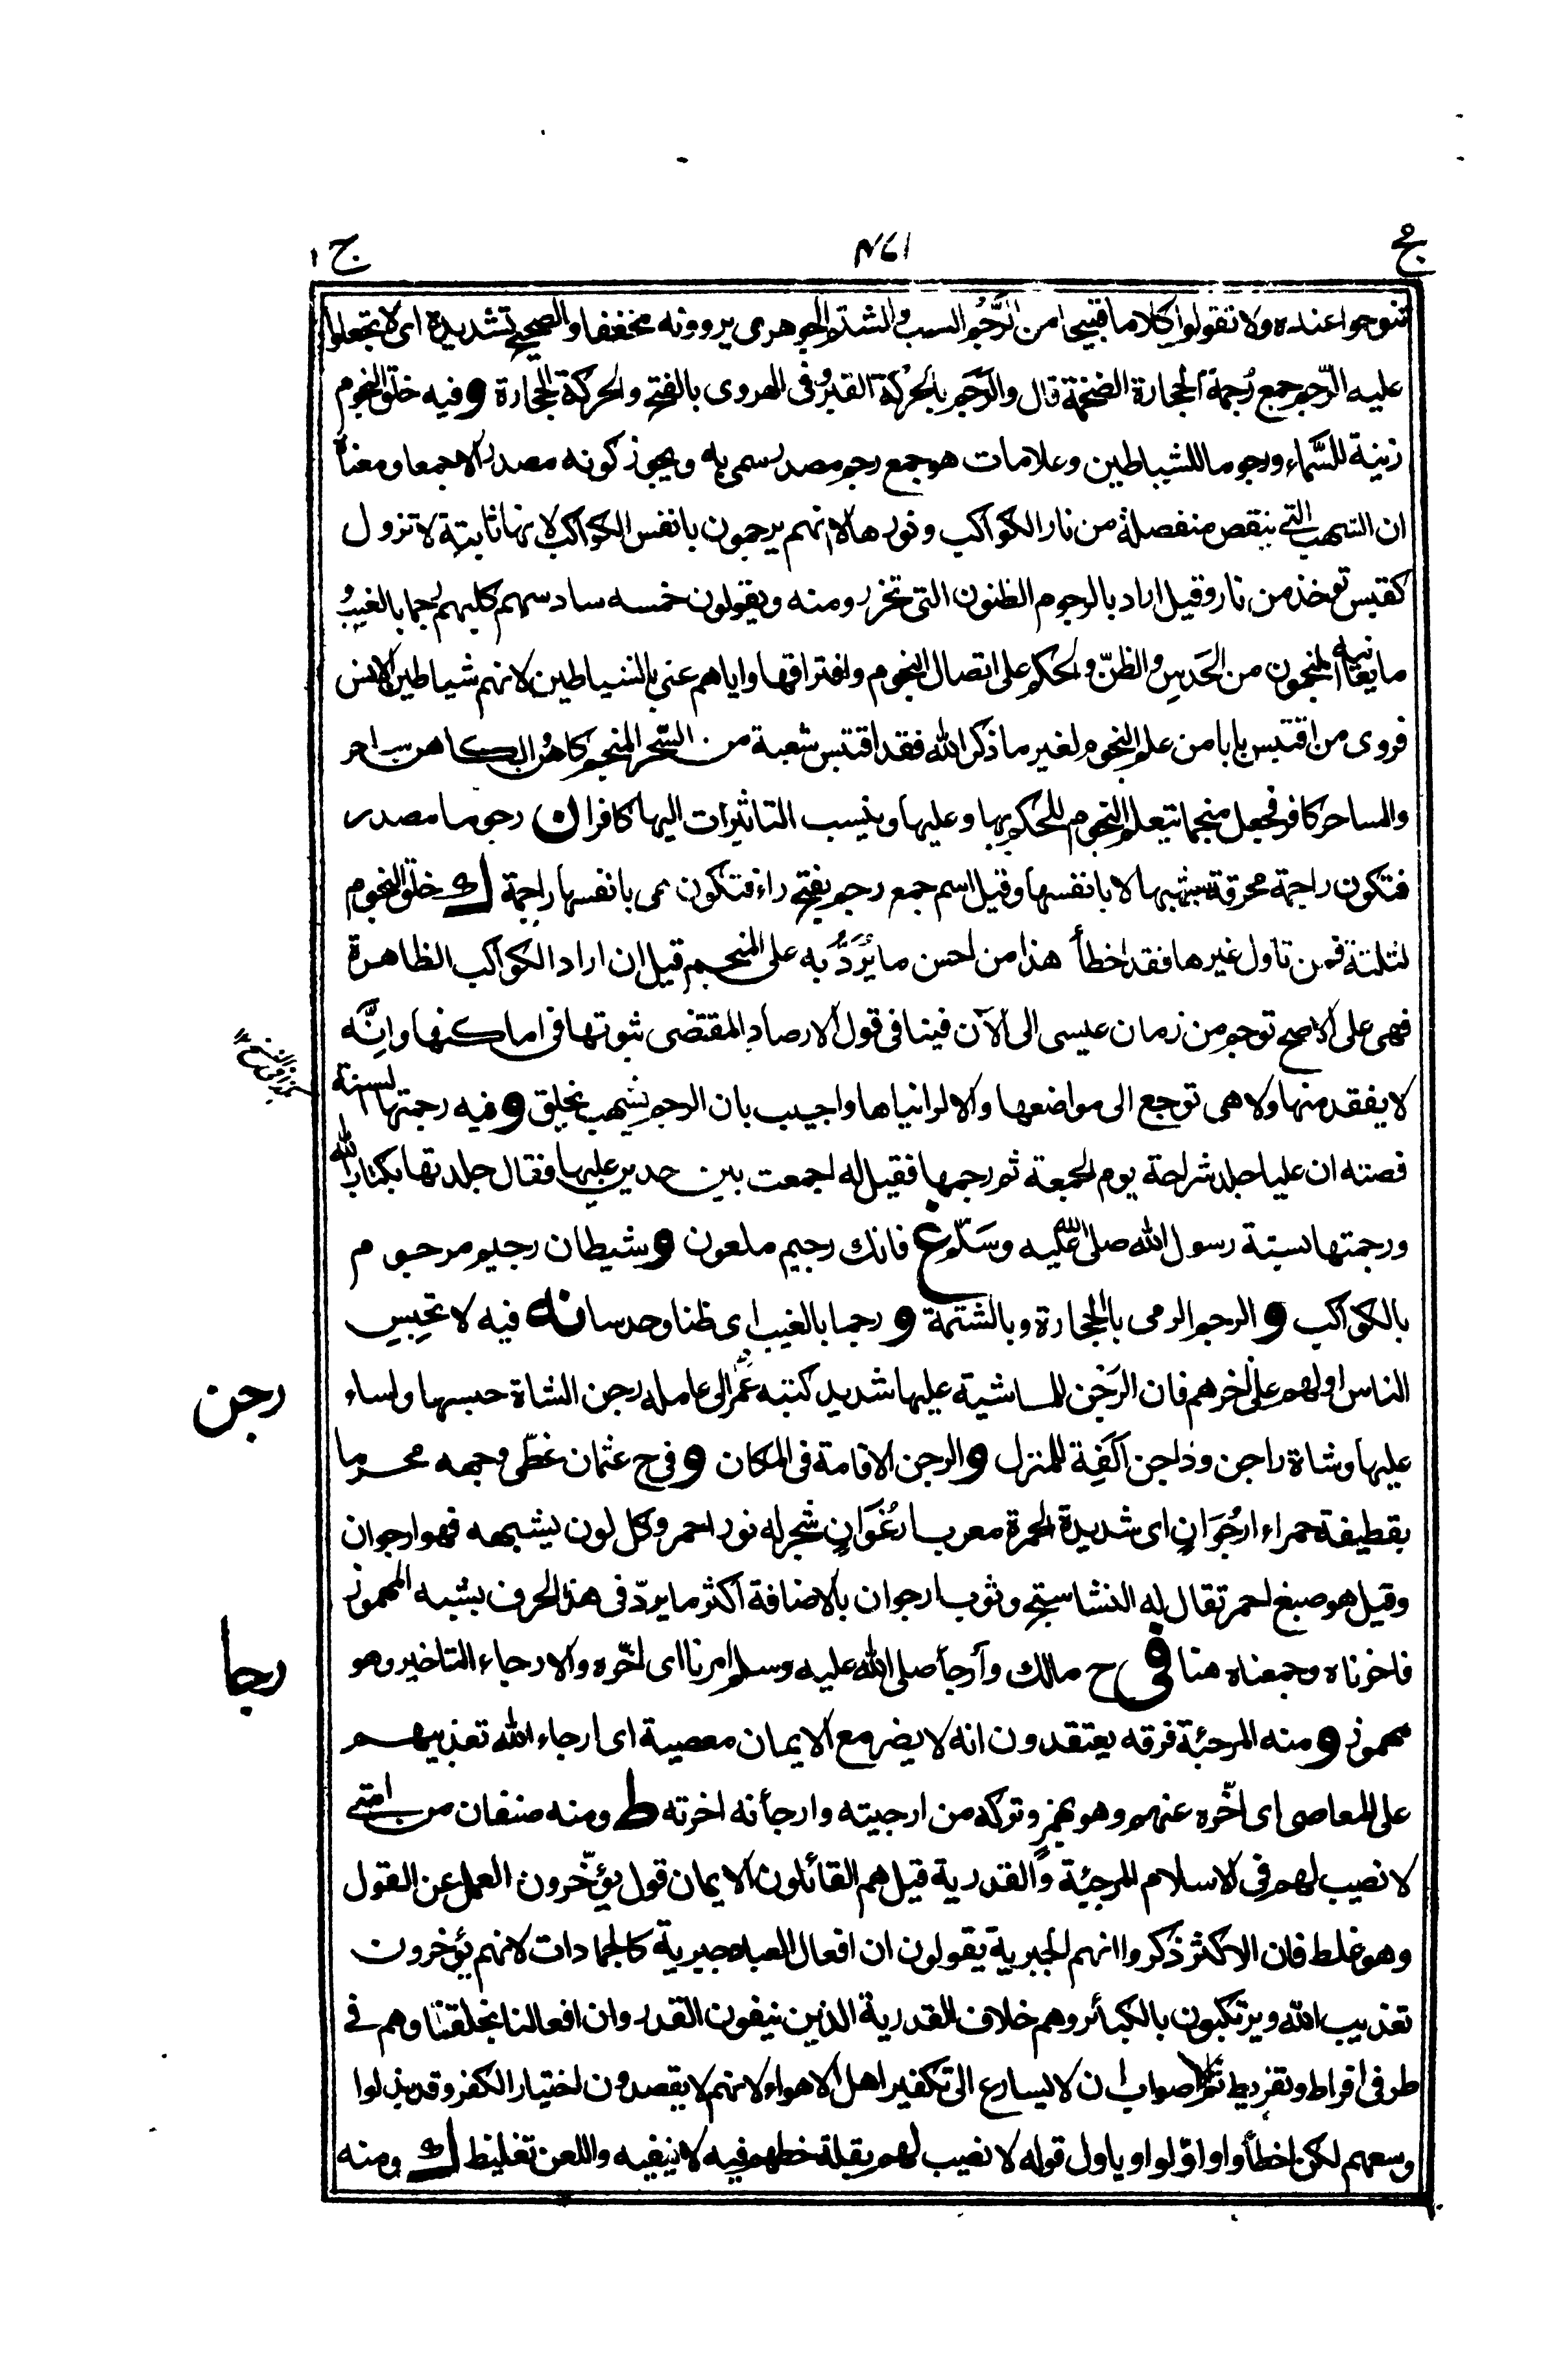 مج ٤٦١ ج ١
تنوحوا عنده ولا تقولوا كلاما قبيحا من الرَّجْمُ السب والشتم الجوهرى يروونه مخففا والصحيح تشديده اى لا تجعلوا
عليه الرُّجم جمع رُجمة الحجارة الضخمة قال والرَّجَم بالحركة القبر وفى الهروى بالفتح والحركة الحجارة و فيه خلق النجوم
زينة للسَّماء ورجوما للشياطين وعلامات هو جمع رجم مصدر سمى به ويجوز كونه مصدرا لا جمعا ومعناه
ان الشهب التى ينقص منفصلة من نار الكواكب ونورها لا انهم يرجمون بانفس الكواكب لانها ثابتة لا تزول
كقبس توخذ من نار وقيل اراد بالرجوم الظنون التى تحزر ومنه ويقولون خمسة سادسهم كلبهم رجما بالغيب و
ما يعانيه المنجمون من الحَدس والظنّ والحكم على اتصال النجوم وافتراقها واياهم عنى بالشياطين لانهم شياطين الانس
فروى من اقتبس بابا من علم النجوم لغير ما ذكر الله فقد اقتبس شعبة من السِّحر المنجم كاهن والكاهن ساحر
والساحر كافر فجعل منجما تتعلم النجوم للحكم بها وعليها وينسب التاثيرات اليها كافرا ن رجوما مصدر
فتكون راجمة محرقة بشهبها لا بانفسها وقيل اسم جمع رجم بفتح راء فتكون هى بانفسها راجمة ك خلق النجوم
لثلثة فمن تاول غيرها فقد اخطأ هذا من احسن ما يُرَدُّ به على المنجم قيل ان اراد الكواكب الظاهرة
فهى على الاصح توجم من زمان عيسى الى الآن فينافى قول الارصاد المقتضى ثبوتها فى اماكنها وانَّه
لا يفقد منها ولا هى توجع الى مواضعها والا لرايناها واجيب بان الرجم بشهب تخلق و فيه رجمتها لسنة
قصته ان عليا جلد شراحة يوم الجمعة ثم رجمها فقيل له اجمعت بين حدين عليها فقال جلدتها بكتاب الله
ورجمتها بسنة رسول الله صلى الله عليه وسَلّم غ فانك رجيم ملعون و شيطان رجيم مرجوم
بالكواكب و الرجم الرمى بالحجارة وبالشتمة و رجما بالغيب اى ظنا وحدسا نه فيه لا تحبس
رجن
الناس اولهم على اخرهم فان الرَجْن للماشية عليها شديد كتبه عُمَر الى عامله رجن الشاة حبسها واساء
عليها وشاة راجن وداجن آلَفَة للمنزل و الرجن الاقامة فى المكان و فى ح عثمان غطّى وجهه محرما
بقطيفة حمراء ارجُوَانٍ اى شديدة الحمرة معرب ارغُوَانٍ شجر له نور احمر وكل لون يشبهه فهو ارجوان
وقيل هو صبغ احمر تقال له النشاستج وثوب ارجوان بالاضافة اكثر ما يردّ فى هذا الحرف بشبه المهموز
رجا
فاخرناه وجمعناه هنا فى ح مالك وأرجأ صلى الله عليه وسلم امرنا اى اخّره والارجاء التاخير وهو
مهموز و منه المرجئة فرقه يعتقدون انه لا يضر مع الايمان معصية اى ارجاء الله تعذيبهم
على المعاصى اى اخّره عنهم وهو بهمزٍ وتركه من ارجيته وارجأته اخرته ط ومنه صنفان من امتى
لا نصيب لهم فى الاسلام المرجئة والقدرية قيل هم القائلون الايمان قول يؤخّرون العمل عن القول
وهو غلط فان الاكثر ذكروا انهم الجبرية يقولون ان افعال العباد جبرية كالجمادات لانهم يؤخرون
تعذيب الله ويرتكبون بالكبائر وهم خلاف القدرية الذين ينفون القدر وان افعالنا بخلقنا وهم فى
طرفى افراط وتفريط صواب ان لا يسارع الى تكفير اهل الاهواء لانهم لا يقصدون اختيار الكفر وقد بذلوا
وسعهم لكن اخطأوا او اوّلوا وياول قوله لا نصيب لهم بقلة حظهم فيه لا بنفيه واللعن تغليظ ك ومنه